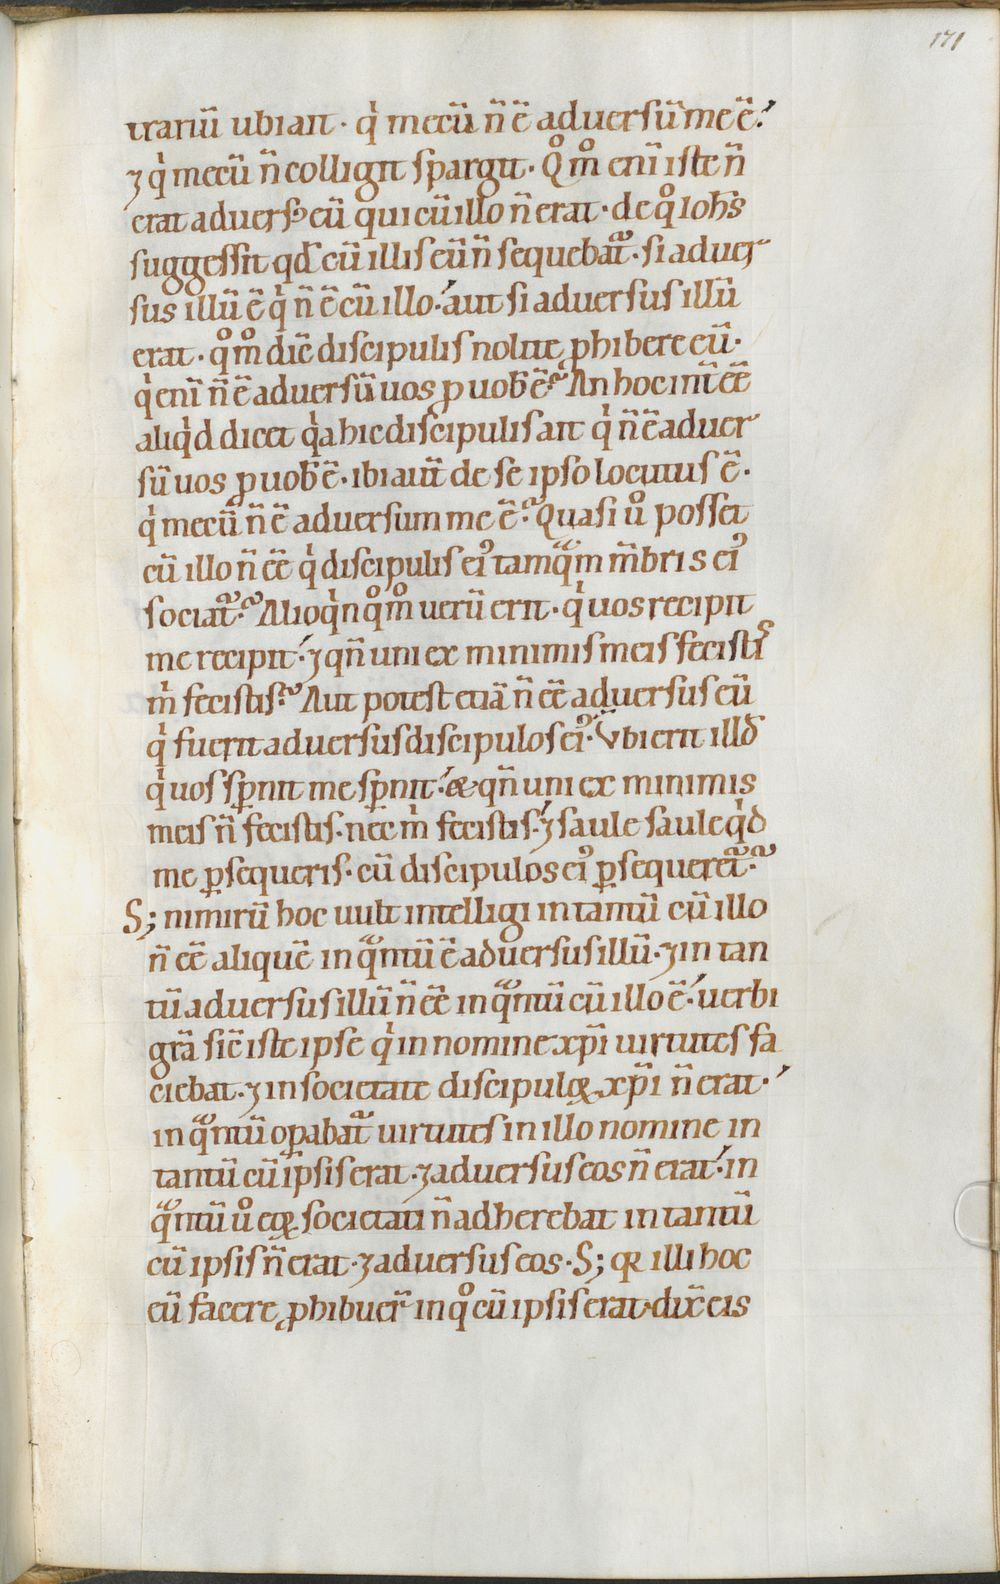 171
trariū ubi ait · qͥ mecū n̄ ē aduersū me ē ·
⁊ qͥ mecū n̄ colligit spargit · Qͦmͦ eni̅ iste n̄
erat adversͦ eū qui cū illo n̄ erat · de qͦ Ioh̅s
suggessit qd̅ cū illis eū n̄ sequebat᷑ · si aduer
sus illū ē qͥ n̄ ē cū illo · aut si aduersus illū
erat · qͦmͦ dic̅ discipulis nolite ꝓhibere eū ·
qͥ eni̅ n̄ ē aduersū uos ꝓ uob̅ ē · An hoc int̅ ee̅
aliqͥd dicet qͥa hic discipulis ait qͥ n̄ ē aduer
sū uos ꝓ uob̅ ē · ibi aut̅ de se ipso locutus ē ·
qͥ mecū n̄ ē aduersum me ē · Quasi uͦ posset
cū illo n̄ ee̅ qͥ discipulis eiꝰ tamqᷓm m̅bris eiꝰ
sociat᷑ · Alioqͥn qͦmͦ uerū erit · qͥ uos recipit
me recipit · ⁊ qn̅ uni ex minimis meis fecistiˢ
mͥ fecistis · Aut potest etiā n̄ ee̅ aduersus eū
qͥ fuerit aduersus discipulos eiꝰ · Ubi erit illd̅
qͥ uos sp̱nit me sp̱nit · & qn̅ uni ex minimis
meis n̄ fecistis · nec mͥ fecistis · ⁊ saule saule qͥd
me ꝑsequeris · cū discipulos eiꝰ ꝑsequeret᷑ ·
S; nimirū hoc uult intelligi in tantū cū illo
n̄ ee̅ aliquē in qᷓntū ē aduersus illū · ⁊ in tan
tū aduersus illū n̄ ee̅ in qᷓntū cū illo ē · uerbi
gr̅a sic̅ iste ipse qͥ in nomine xp̅i uirtutes fa
ciebat · ⁊ in societate discipulꝝ xp̅i n̄ erat ·
in qᷓntū oꝑabat᷑ uirtutes in illo nomine in
tantū cū ipsis erat · ⁊ aduersus eos n̄ erat · in
qᷓntū uͦ eoꝝ societati n̄ adherebat in tantū
cū ipsis n̄ erat · ⁊ aduersus eos · S; qꝛ illi hoc
eū facere ꝓhibuer̅ in qͦ cū ipsis erat · dix̅ eis